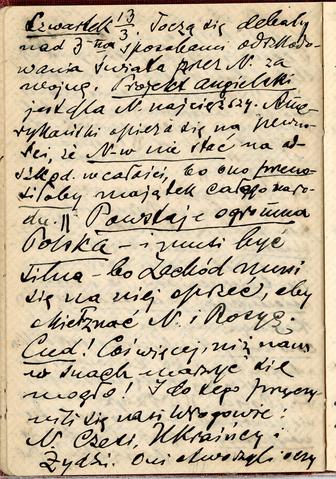 Czwartek 13/3. Toczą się debaty
nad 3-ma sposobami odszkodo-
wania świata przez N. za
wojnę. Projekt angielski
jest dla N. najcięższy. Ame-
rykański opiera się na pewno-
ści, że N-w nie stać na od-
szkod. w całości, bo one przeno-
siłoby majątek całego naro-
du. || Powstaje ogromna
Polska – i musi być
silna – bo Zachód musi
się na niej oprzeć, aby
N. i Rosyę.
Cud! Coś więcej, niż nam
w snach marzyć się
mogło! I do tego przyczy-
nili się nasi wrogowie:
N. Czesi, Ukraińcy i
Żydzi. Oni otworzyli oczy